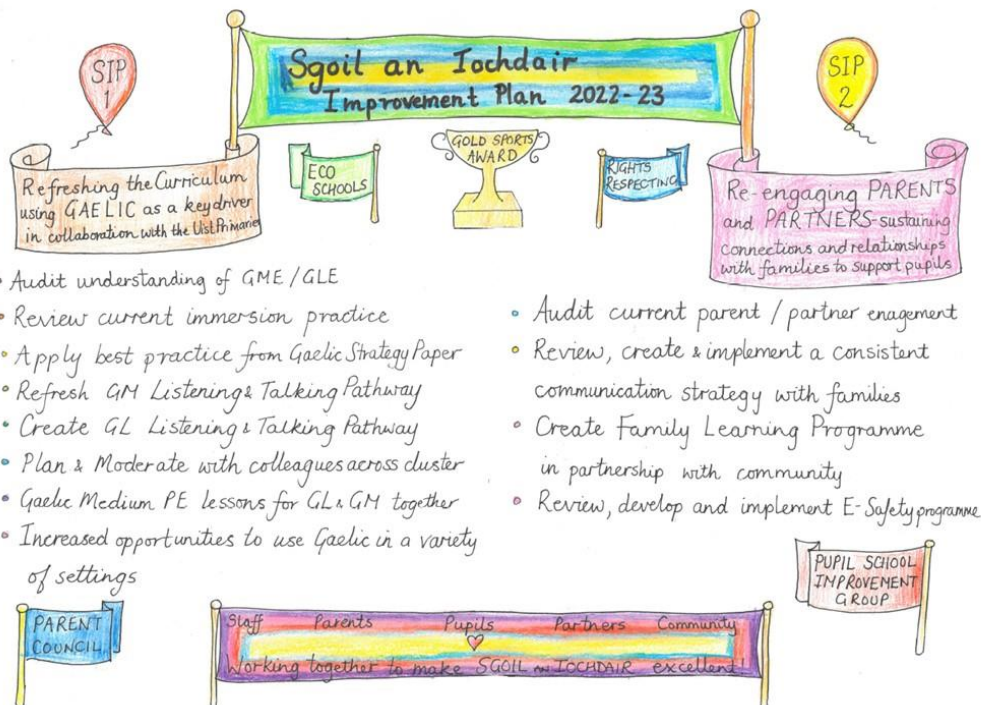 SIP
1
Sgoil an Iochdair
Improvement Plan 2022-23
SIP
2
ECO
SCHOOLS
GOLD SPORTS
AWARD
RIGHTS
RESPECTING
Refreshing the Curriculum
using GAELIC as a key driver
in collaboration with the Uist Primaries
Re-engaging PARENTS
and PARTNERS-sustaining
connections and relationships
with families to support pupils
• Audit understanding of GME/GLE
• Review current immersion practice
• Apply best practice from Gaelic Strategy Paper
• Refresh GM Listening & Talking Pathway
• Create GL Listening & Talking Pathway
• Plan & Moderate with colleagues across cluster
• Gaelic Medium PE lessons for GL & GM together
• Increased opportunities to use Gaelic in a variety
of settings
• Audit current parent / partner enagement
• Review, create & implement a consistent
communication strategy with families
• Create Family Learning Programme
in partnership with community
• Review, develop and implement E-Safety programme
PUPIL SCHOOL
IMPROVEMENT
GROUP
PARENT
COUNCIL
Staff Parents Pupils Partners Community
Working together to make SGOIL AN IOCHDAIR excellent!